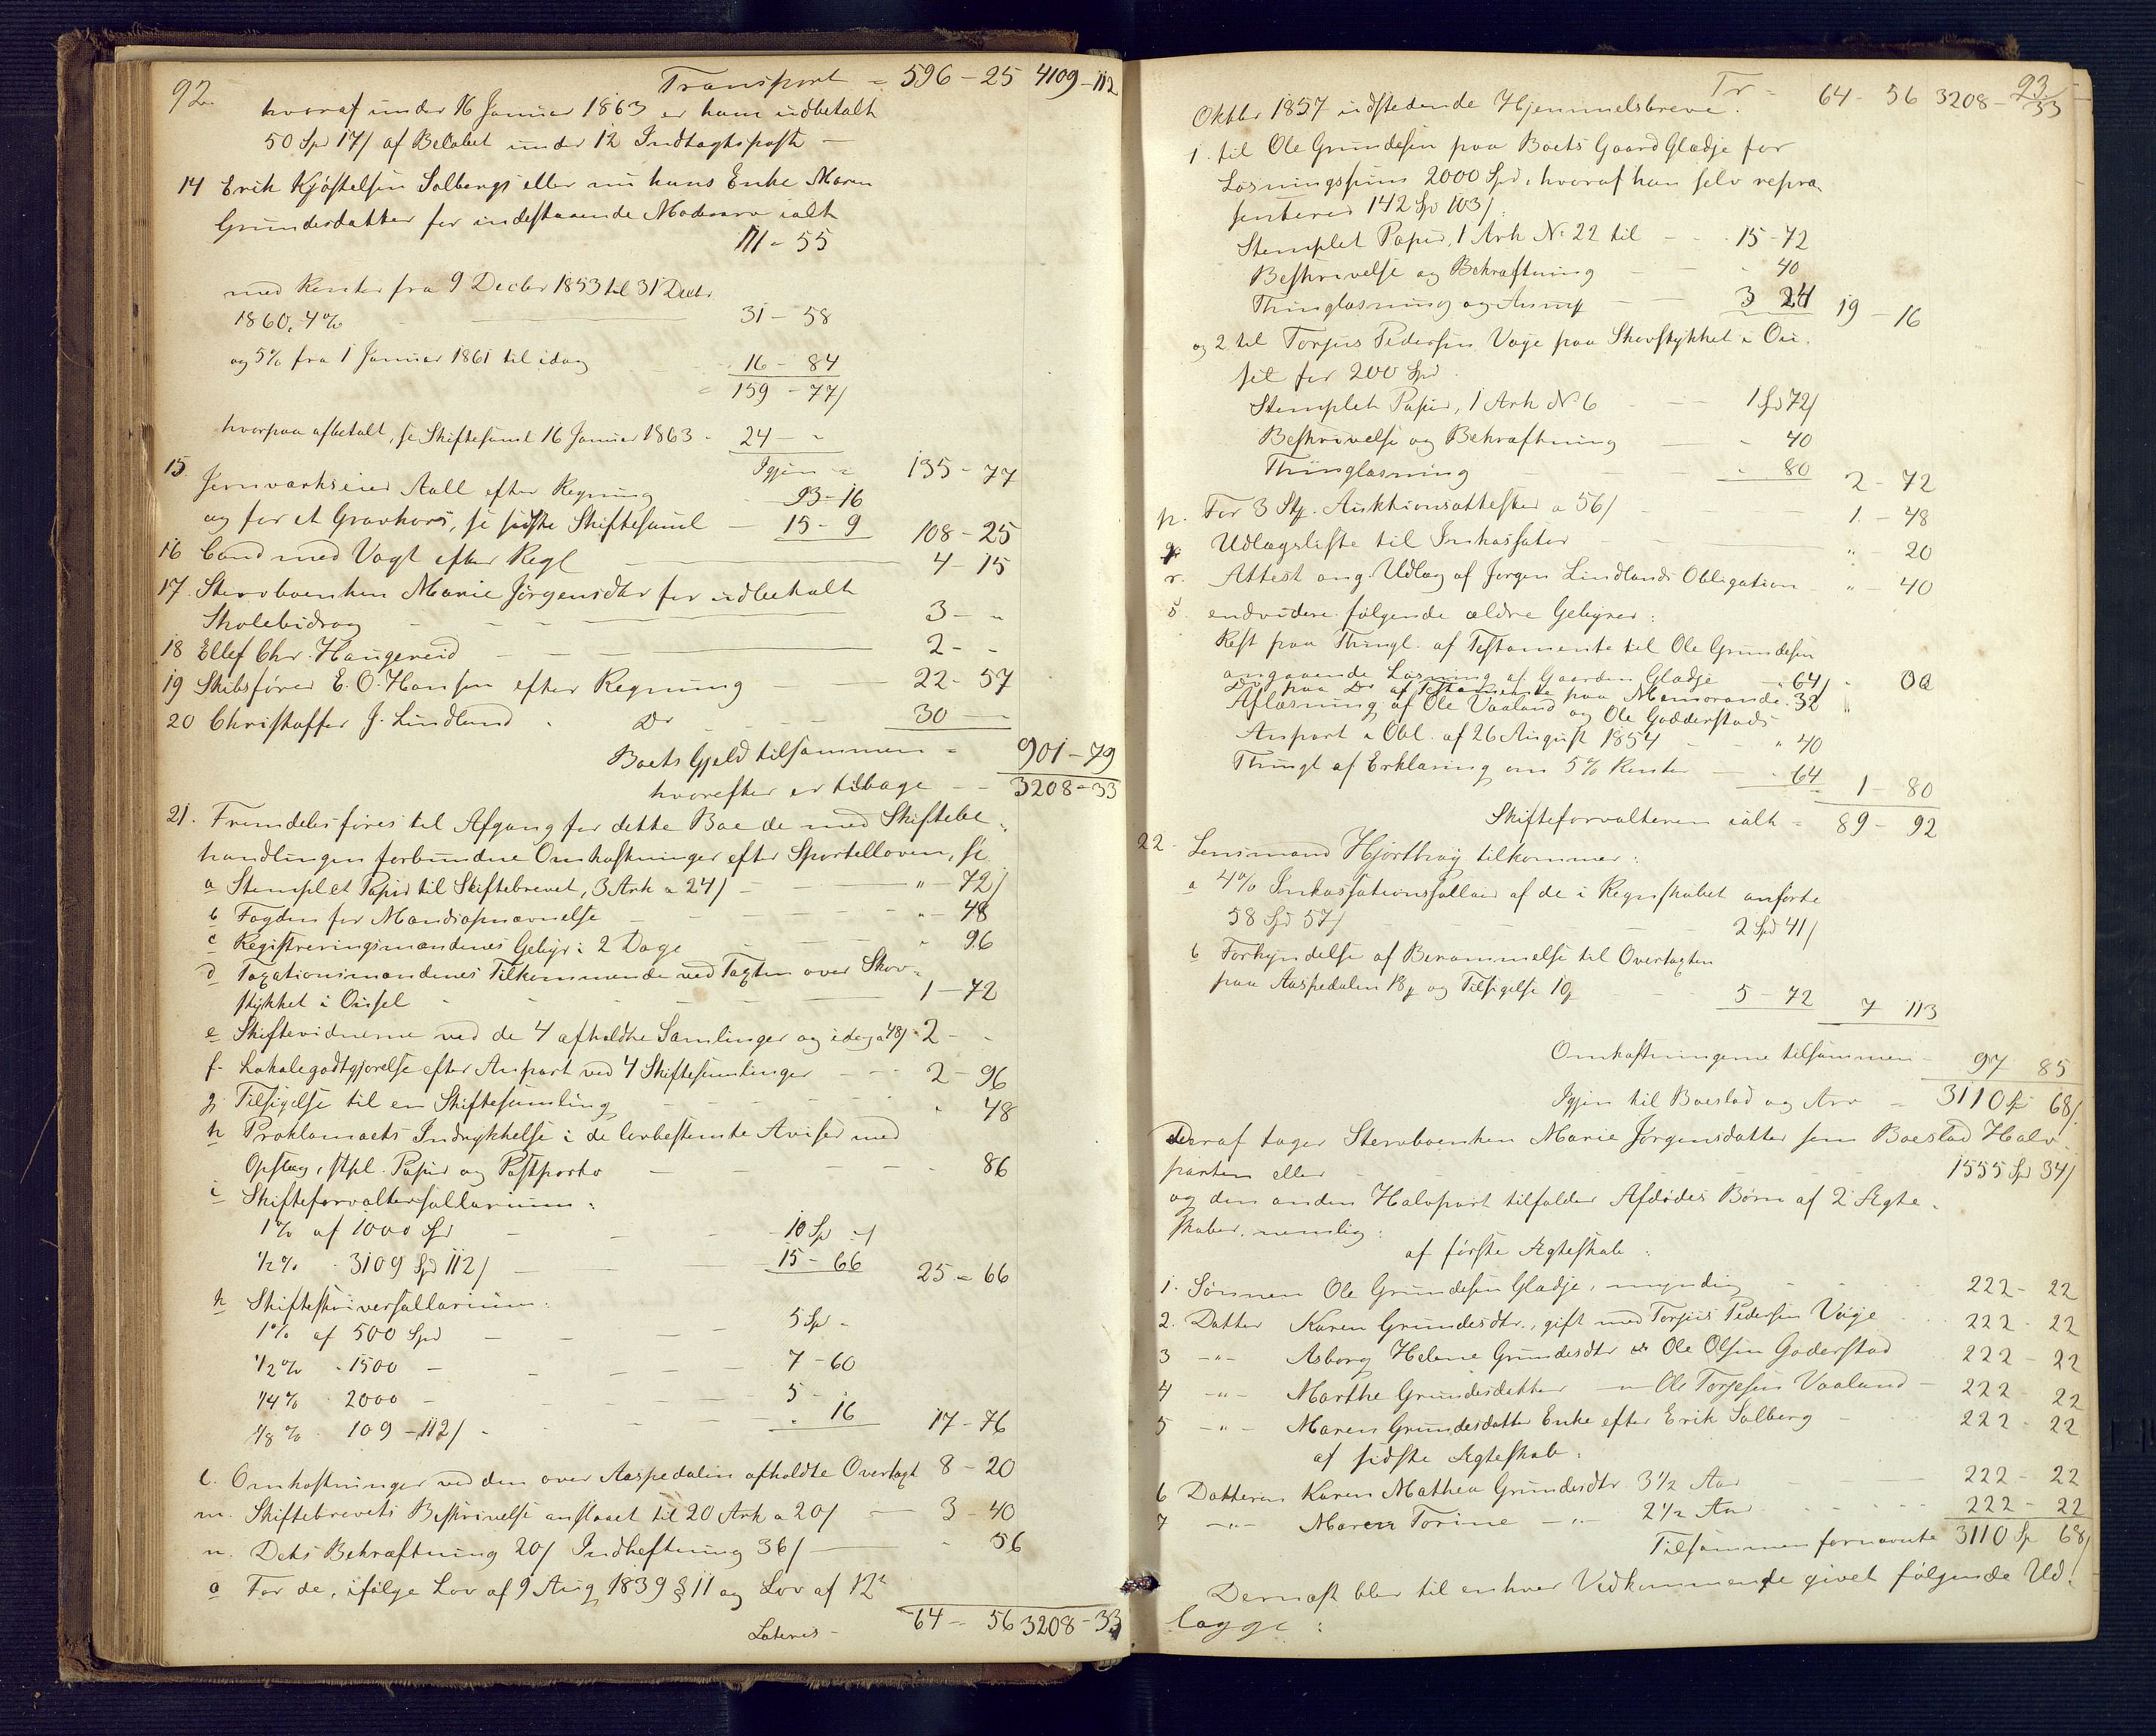 92. Transport = 596 - 25 4109 - 112
hvoraf under 16 Januar 1863 er ham udbetalt
50 Spd 17/ af Beløbet under 12 Indtægtspost -
14 Erik Kjøstelsen Solbergs eller nu hans Enke Maren
Grundesdatter for indestaaende Mødrearv ialt
111 - 55
med Renter fra 9 Decbr 1853 til 31 Decbr
1860, 4% 31 - 58
og 5% fra 1 Januar 1861 til idag 16 - 84
= 159 - 77/
hvorpaa afbetalt, se Skiftesaml 16 Januar 1863 - 24 - "
Igjen = 135 - 77
15. Jernværkseier Aall efter Regning 93 - 16
og for et Gravkors, se sidste Skiftesaml - 15 - 9 108 - 25
16 Cand med Vogt efter Regl 4 - 15
17. Stervboenken Marie Jørgensdtr for udbetalt
Skolebidrag 3 - "
18 Ellef Chr. Haugereid 2 - -
19 Skibsfører E. O. Hansen efter Regning 22 - 57
20 Christoffer J. Lindland Do 30 -
Boets Gjæld tilsammen = 901 - 79
hvorefter er tilbage - 3208 - 33
21. Fremdeles føres til Afgang for dette Bo de med Skiftebe-
handlingen forbundne Omkostninger efter Sportelloven, se
a Stemplet Papir til Skiftebrevet, 3 Ark a 24/ - " - 72/
b Fogden for Mandsopnævnelse " - 48
c Registreringsmændenes Gebyr i 2 Dage " 96
d Taxationsmændenes Tilkommende ved Taxten over Skov-
stykket i Ousel 1 - 72
e Skiftevidnerne ved de 4 afholdte Samlinger og idag a 48/ 2 - -
f. Lokalegodtgjørelse efter Anpart ved 4 Skiftesamlinger 2 - 96
g. Tilsigelse til en Skiftesamling " 48
h Proklamaets Indrykkelse i de lovbestemte Aviser med
Opslag, stpl. Papir og Postporto - 86
i Skifteforvaltersallarium:
1% af 1000 Spd 10 Sp "/
1/2% " 3109 Spd 112/ 15 - 66 25 - 66
k Skifteskriversallarium:
1% af 500 Spd 5 Spd -
1/2% " 1500 - 7 - 60
1/4% " 2000 - 5 -
1/8% 109 - 112/ " 16 17 - 76
l. Omkostninger ved den over Aaspedalen afholdte Overtaxt 8 - 20
m. Skiftebrevets Beskrivelse anslaaet til 20 Ark a 20/ 3 - 40
n. Dets Bekræftning 20/ Indheftning 36/ - 56
o For de, ifølge Lov af 9 Aug 1839 § 11 og Lov af 12te
Lateris - 64 - 56 3208 - 33
Tr - 64 - 56 3208 - 33
93
Oktbr 1857 udstedende Hjemmelsbreve.
1. til Ole Grundesen paa Boets Gaard Gladje for
Løsningssum 2000 Spd, hvoraf han selv repræ-
senterer 142 Spd 103/:
Stemplet Papir, 1 Ark No 22 til 15 - 72
Beskrivelse og Bekræftning " 40
Thinglæsning og 3 24 19 - 16
og 2 til Torjus Pedersen Vaje paa Skovstykket i Ou-
sel for 200 Spd.
Stemplet Papir, 1 Ark No 6 1 Spd 72/
Beskrivelse og Bekræftning " 40
Thinglæsning " 80 2 - 72
p. For 3 Stk. Auktionsattester a 56/ 1 - 48
q Udlægsliste til Inkassator " 20
r. Attest ang. Udlæg af Jørgen Lindlands Obligation " - 40
s endvidere følgende ældre Gebyrer:
Rest paa Thingl. af Testamente til Ole Grundesen
angaaende Løsning af Gaarden Gladje " 64/
Do paa Do af Testamente paa Memorande. 32
Aflæsning af Ole Vaaland og Ole Godderstads
Anpart i Obl. af 26 August 1854 " 40
Thingl af Erklæring om 5% Renter " 64 1 - 80
Skifteforvalteren ialt = 89 - 92
22. Lensmand Hjortbroy tilkommer:
a 4% Inkassationssallair af de i Regnskabet anførte
58 Spd 57/ 2 Spd 41/
b Forkyndelse af Berammelse til Overtaxten
paa Aaspedalen 18/ og Tilsigelse 5 - 72 7 113
Omkostningerne tilsammen - 97 85
Igjen til Boeslod og Arv = 3110 Sp 68/
deraf tager Stervboenken Marie Jørgensdatter sem Boeslod Halv-
parten eller 1555 Spd 34/
og den anden Halvpart tilfalder Afdødes Børn af 2 Ægte-
skaber, nemlig:
af første Ægteskab:
1. Sønnen Ole Grundesen Gladje, myndig 222 - 22
2. Datter Karen Grundesdtr., gift med Torjus Pedersen Vaje 222 - 22
3 -"- Asborg Helene Grundesdtr Ole Olsen Goderstad 222 - 22
4 -"- Marthe Grundesdatter -"- Ole Torjesen Vaaland - 222 22
5 -"- Maren Grundesdatter Enke efter Erik Solberg 222 - 22
af sidste Ægteskab:
6 Datteren Karen Mathea Grundesdtr. 3 1/2 Aar 222 - 22
7 -"- Maren Torine -"- 2 1/2 Aar 222 - 22
Tilsammen fornævnte 3110 Sp 68/
Dernæst blev til enhver Vedkommende givet følgende Ud-
lægge: